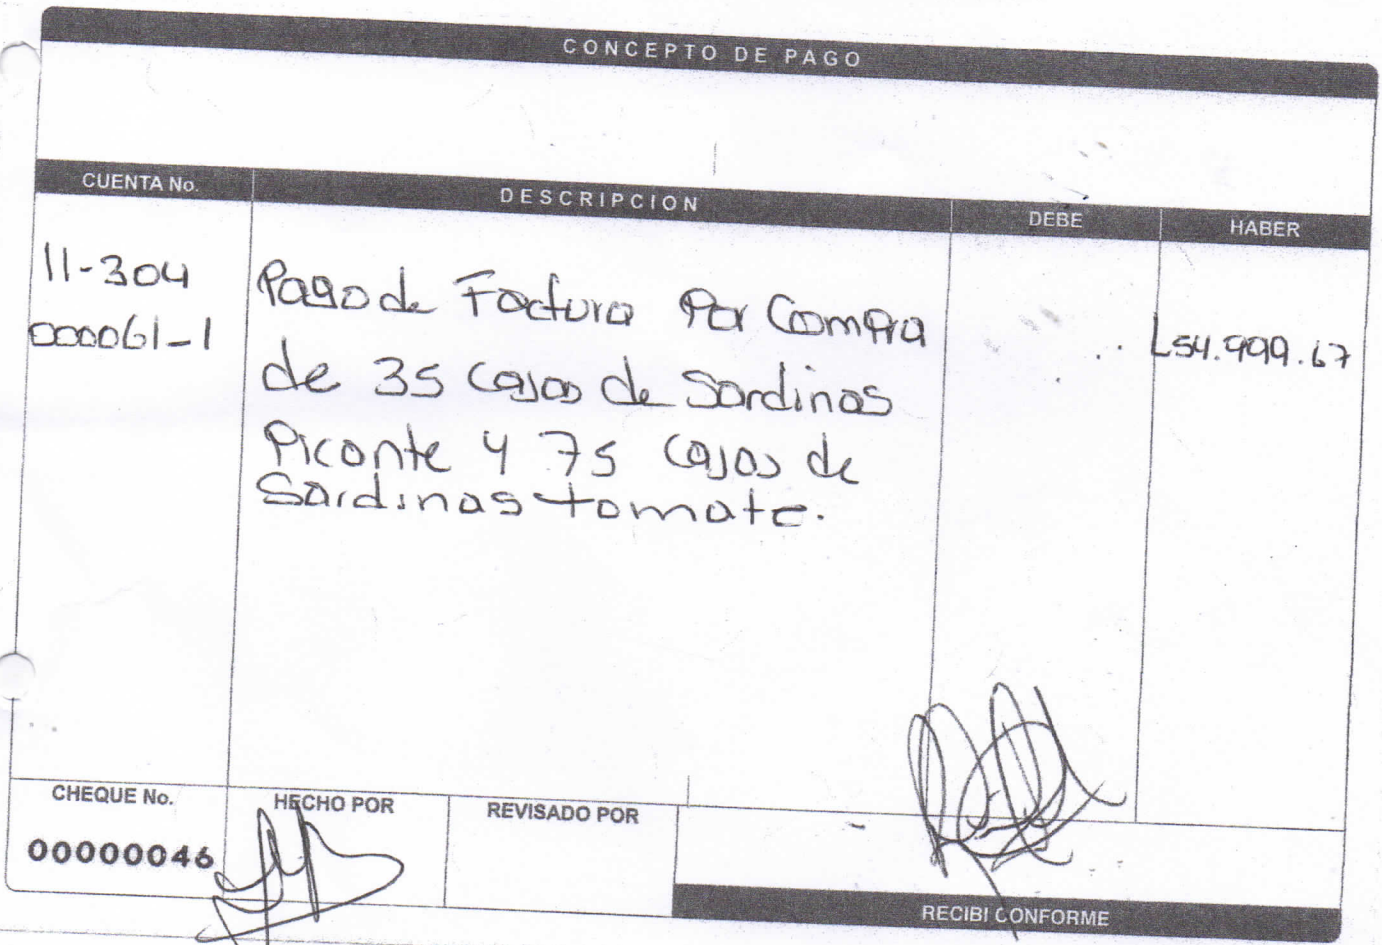 CONCEPTO DE PAGO
CUENTA No. DESCRIPCION DEBE HABER
11-304
000061-1
Pago de Factura Por Compra
de 35 cajas de Sardinas
Picante y 75 cajas de
Sardinas tomate.
L54.999.67
CHEQUE No. HECHO POR REVISADO POR
00000046
RECIBI CONFORME